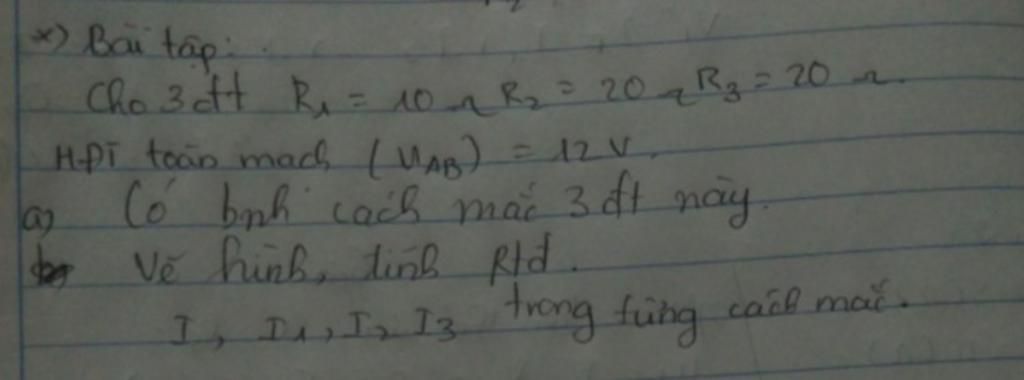 *) Bài tập:
Cho 3 đt R1 = 10 Ω R2 = 20 Ω R3 = 20 Ω.
HĐT toàn mạch (UAB) = 12 V.
a) Có bnh cách mắc 3 đt này.
b) Vẽ hình, tính Rtđ.
I, I1, I2 I3 trong từng cách mắc.